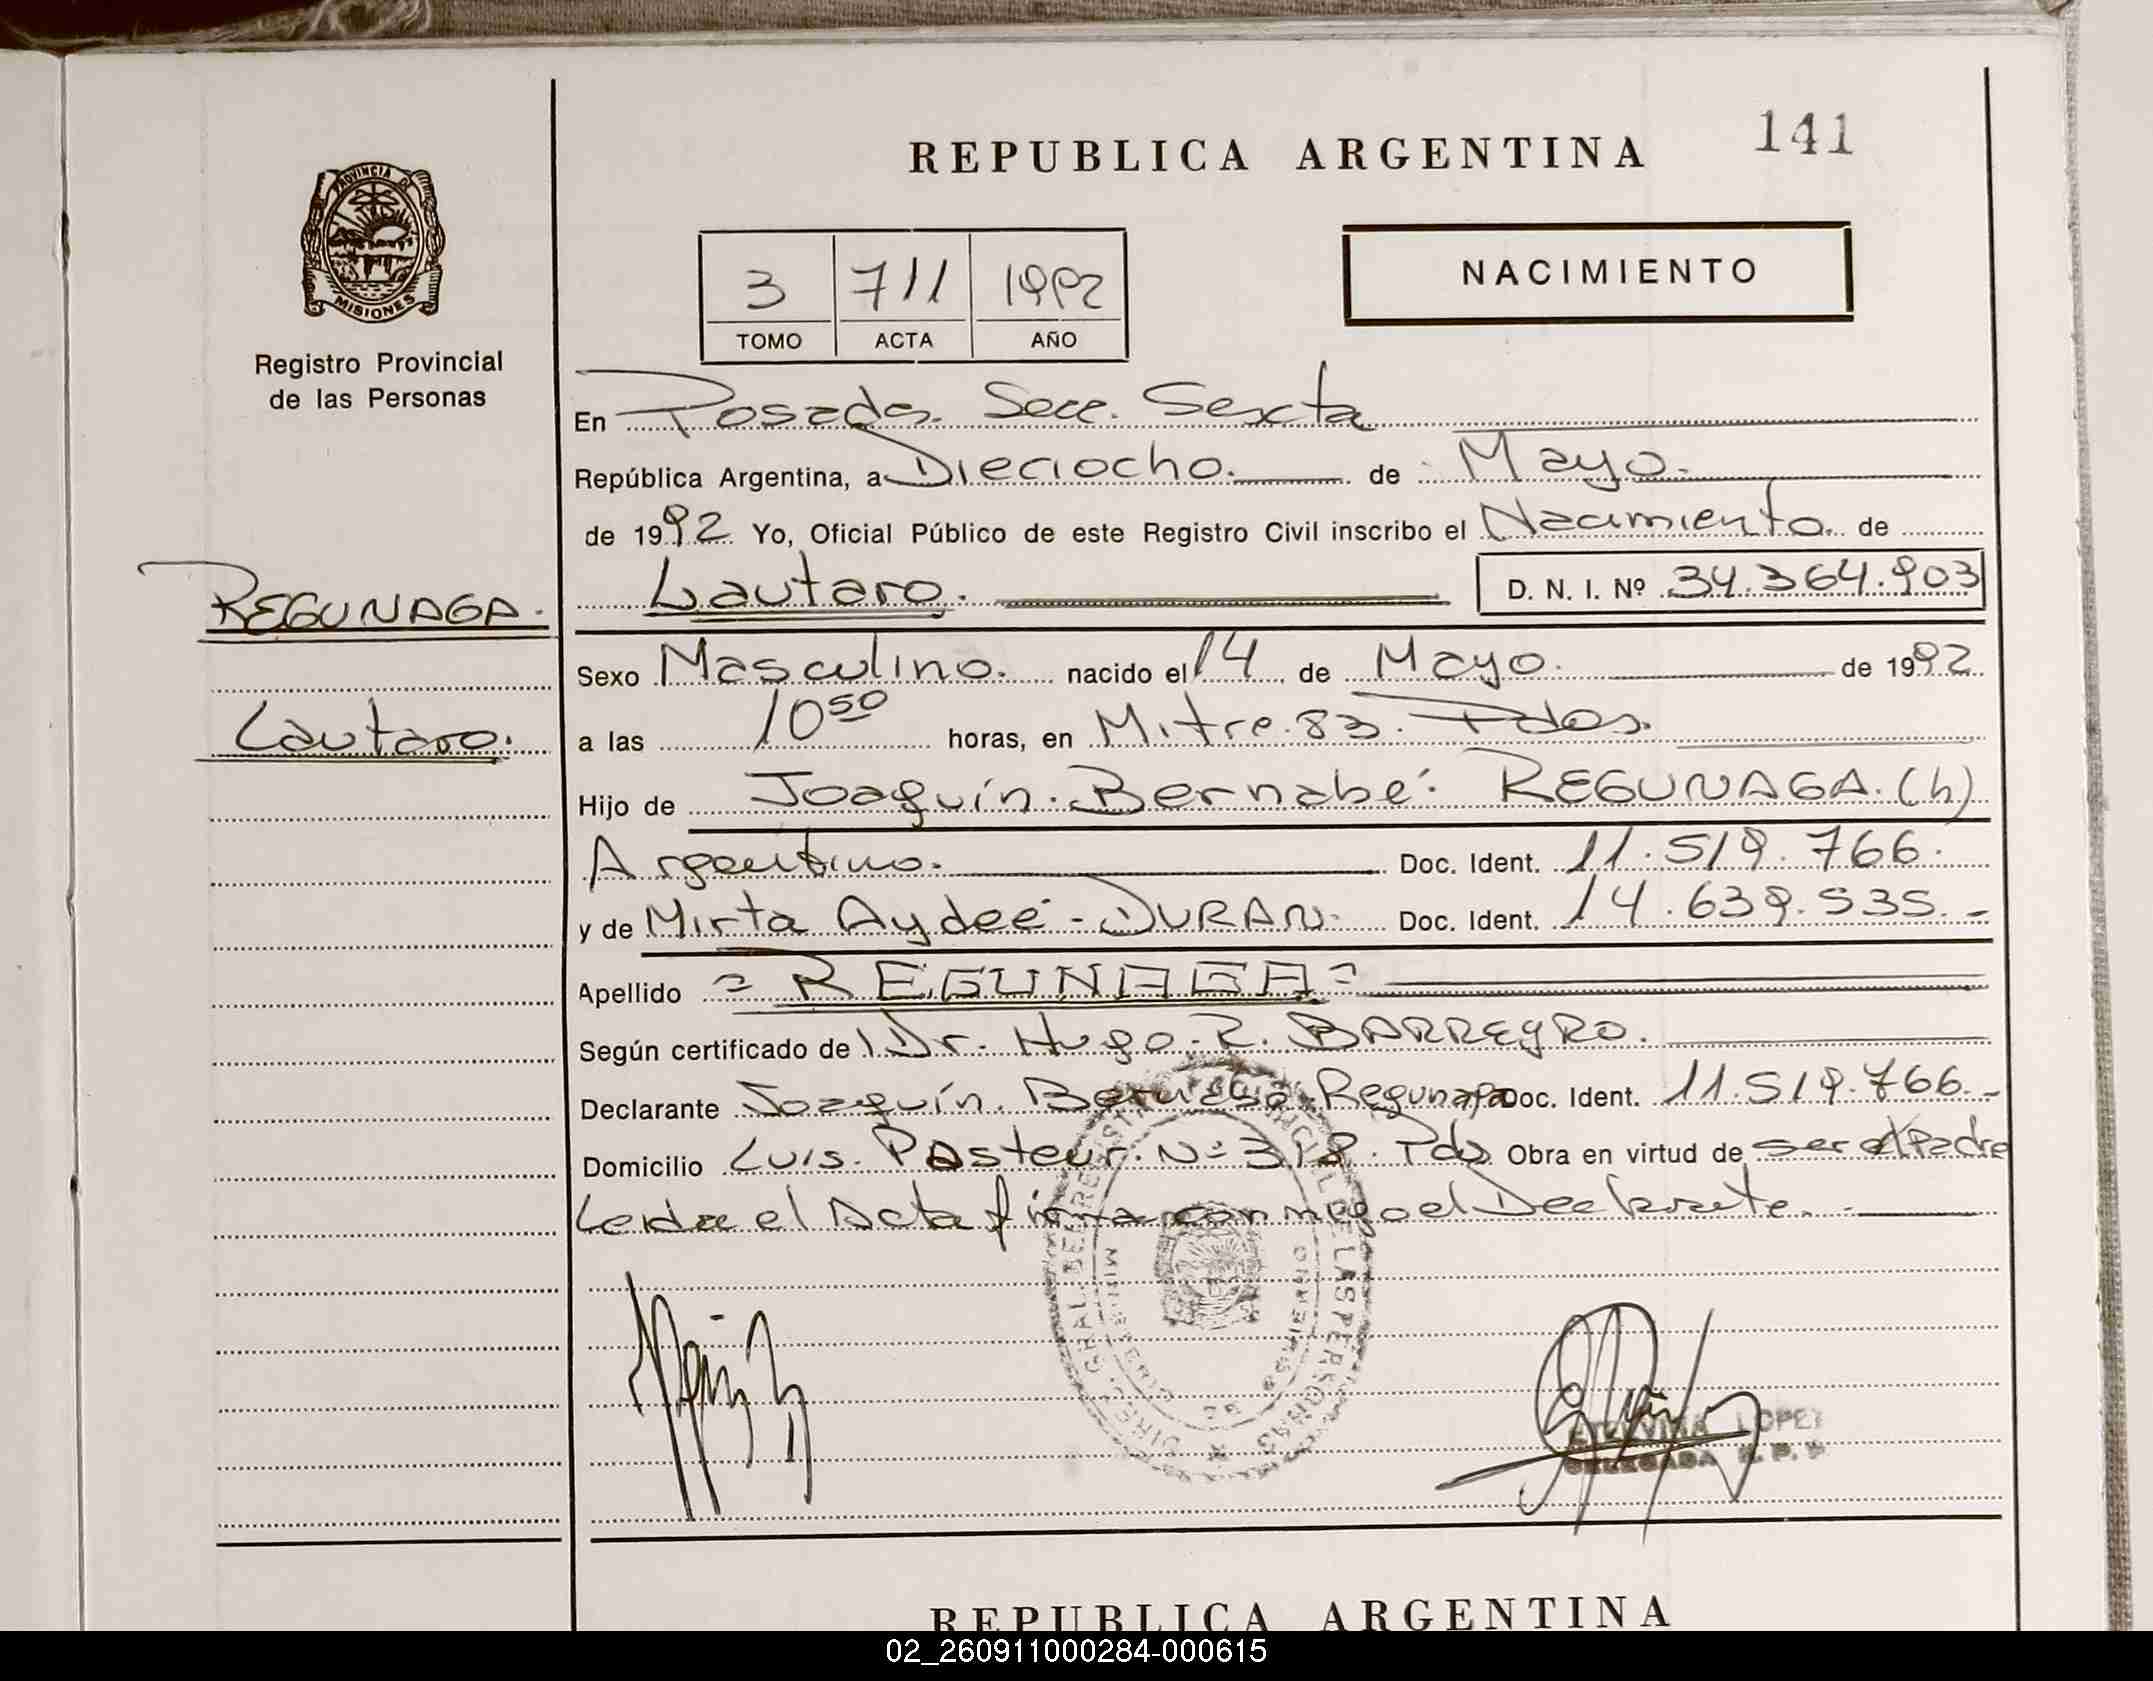 REPUBLICA ARGENTINA
141
PROVINCIA DE
MISIONES
Registro Provincial
de las Personas
3 711 1992
TOMO ACTA AÑO
NACIMIENTO
En Posadas. Secc. Sexta
República Argentina, a Dieciocho. de Mayo.
de 1992 Yo, Oficial Público de este Registro Civil inscribo el Nacimiento. de
Lautaro. D. N. I. Nº 34.364.903
REGUNAGA.
Lautaro.
Sexo Masculino. nacido el 14 de Mayo. de 1992.
a las 10 50 horas, en Mitre. 83. Pdas.
Hijo de Joaquín. Bernabé. REGUNAGA. (h)
Argentino. Doc. Ident. 11.519.766.
y de Mirta Aydeé - DURAN. Doc. Ident. 14.639.535.-
Apellido = REGUNAGA =
Según certificado de Dr. Hugo. R. BARREYRO.
Declarante Joaquín. Bernabé. Regunaga Doc. Ident. 11.519.766.-
Domicilio Luis. Pasteur. Nº 398. Pdas Obra en virtud de ser el Padre
Leida el Acta firma conmigo el Declarante.
DIREC. GRAL. DE REGISTRO PROVINCIAL DE LAS PERSONAS
MINISTERIO DE GOBIERNO
LOPEZ
DELEGADA R. P. P.
REPUBLICA ARGENTINA
02_260911000284-000615